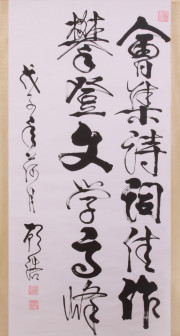 會集詩词佳作
攀登文学高峰
戊子年荷月